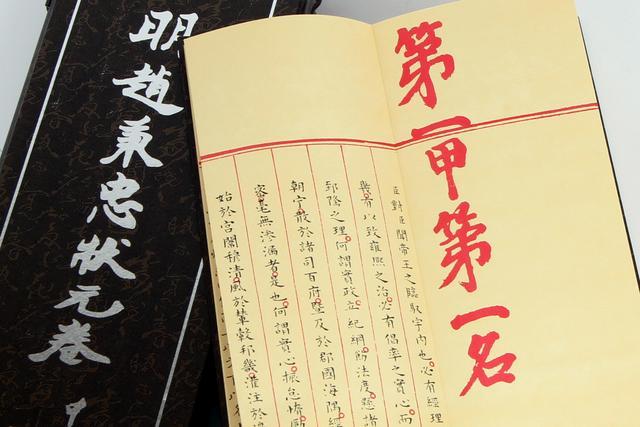 明趙秉忠狀元卷
第一甲第一名
臣對臣聞帝王之臨馭宇內也必有經理
有以致雍熙之治必有倡率之實心而
郅隆之理何謂實政立紀綱飭法度懸諸
朝宁散於諸司百府暨及於郡國海隅經
密毫無滲漏者是也何謂實心振怠惰勵
始於宮闈穆清風於輦轂邦畿灌注於